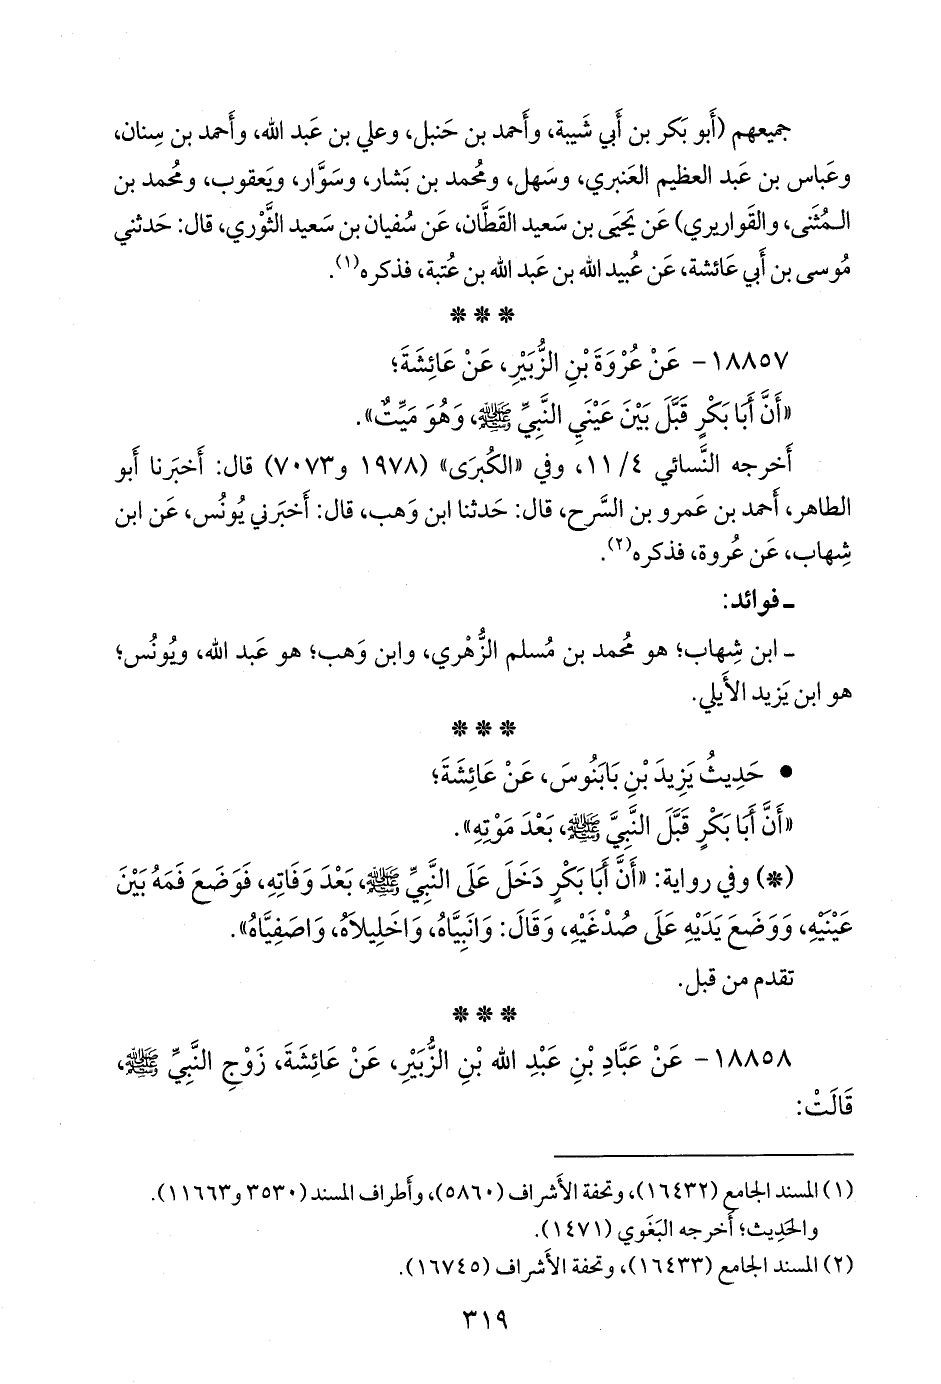 جميعهم (أَبو بَكر بن أَبي شَيبة، وأَحمد بن حَنبل، وعلي بن عَبد الله، وأَحمد بن سِنان،
وعَباس بن عَبد العظيم العَنبري، وسَهل، ومُحمد بن بَشار، وسَوَّار، ويَعقوب، ومُحمد بن
المُثَنى، والقَواريري) عَن يَحيَى بن سَعيد القَطَّان، عَن سُفيان بن سَعيد الثَّوْري، قال: حَدثني
مُوسى بن أَبي عَائشة، عَن عُبيد الله بن عَبد الله بن عُتبة، فذكره(١).
* * *
١٨٨٥٧ - عَنْ عُرْوَةَ بْنِ الزُّبَيْرِ، عَنْ عَائِشَةَ؛
«أَنَّ أَبَا بَكْرٍ قَبَّلَ بَيْنَ عَيْنَيِ النَّبِيِّ ﷺ، وَهُوَ مَيِّتٌ».
أَخرجه النَّسائي ٤/ ١١، وفي «الكُبرَى» (١٩٧٨ و٧٠٧٣) قال: أَخبَرنا أَبو
الطاهر، أَحمد بن عَمرو بن السَّرح، قال: حَدثنا ابن وَهب، قال: أَخبَرني يُونُس، عَن ابن
شِهاب، عَن عُروة، فذكره(٢).
ـ فوائد:
ـ ابن شِهاب؛ هو مُحمد بن مُسلم الزُّهْري، وابن وَهب؛ هو عَبد الله، ويُونُس؛
هو ابن يَزيد الأَيلي.
* * *
• حَدِيثُ يَزِيدَ بْنِ بَابَنُوسَ، عَنْ عَائِشَةَ؛
«أَنَّ أَبَا بَكْرٍ قَبَّلَ النَّبِيَّ ﷺ، بَعْدَ مَوْتِهِ».
(*) وفي رواية: «أَنَّ أَبَا بَكْرٍ دَخَلَ عَلَى النَّبِيِّ ﷺ، بَعْدَ وَفَاتِهِ، فَوَضَعَ فَمَهُ بَيْنَ
عَيْنَيْهِ، وَوَضَعَ يَدَيْهِ عَلَى صُدْغَيْهِ، وَقَالَ: وَانَبِيَّاهُ، وَاخَلِيلاَهُ، وَاصَفِيَّاهُ».
تقدم من قبل.
* * *
١٨٨٥٨ - عَنْ عَبَّادِ بْنِ عَبْدِ الله بْنِ الزُّبَيْرِ، عَنْ عَائِشَةَ، زَوْجِ النَّبِيِّ ﷺ،
قَالَتْ:
(١) المسند الجامع (١٦٤٣٢)، وتحفة الأَشراف (٥٨٦٠)، وأطراف المسند (٣٥٣٠ و١١٦٦٣).
والحَدِيث؛ أَخرجه البَغَوي (١٤٧١).
(٢) المسند الجامع (١٦٤٣٣)، وتحفة الأَشراف (١٦٧٤٥).
٣١٩